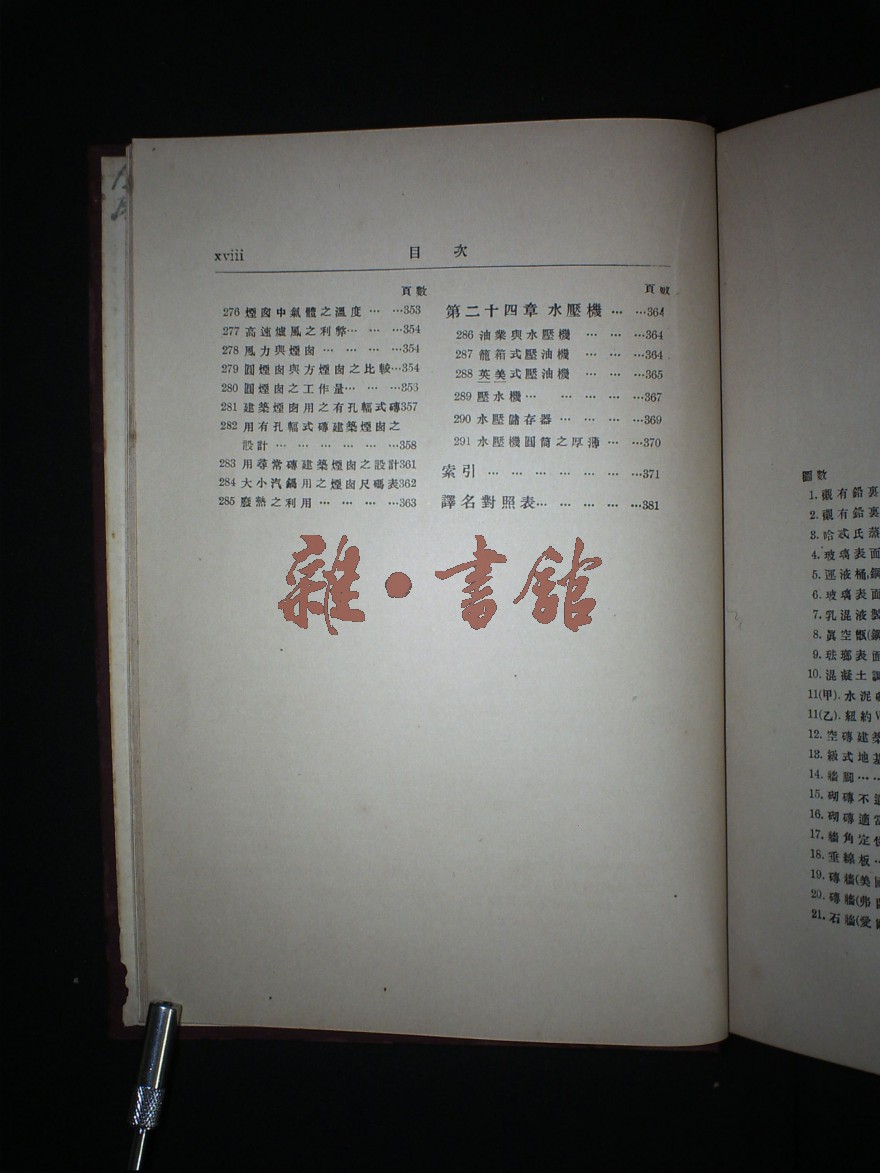 xviii 目次
頁數
276 煙囪中氣體之溫度 … …353
277 高速爐風之利弊… … …354
278 風力與煙囪 … … … …354
279 圓煙囪與方煙囪之比較…354
280 圓煙囪之工作量… … …356
281 建築煙囪用之有孔輻式磚357
282 用有孔輻式磚建築煙囪之
設計 … … … … … …358
283 用尋常磚建築煙囪之設計361
284 大小汽鍋用之煙囪尺碼表362
285 廢熱之利用 … … … …363
頁數
第二十四章 水壓機 … …364
286 油業與水壓機 … … …364
287 籠箱式壓油機 … … …364
288 英美式壓油機 … … …365
289 壓水機… … … … …367
290 水壓儲存器 … … … …369
291 水壓機圓筒之厚薄 … …370
索引 … … … … … … …371
譯名對照表… … … … …381
雜·書館
圖數
1. 襯有鉛裏
2. 襯有鉛裏
3. 哈式氏蒸
4. 玻璃表面
5. 逕液桶,鋼
6. 玻璃表面
7. 乳混液製
8. 眞空甑(鋼
9. 琺瑯表面
10. 混凝土調
11(甲). 水泥
11(乙). 紐約
12. 空磚建築
13. 級式地基
14. 牆脚……
15. 砌磚不適
16. 砌磚適當
17. 牆角定位
18. 垂線板…
19. 磚牆(美國
20. 磚牆(弗
21. 石牆(愛